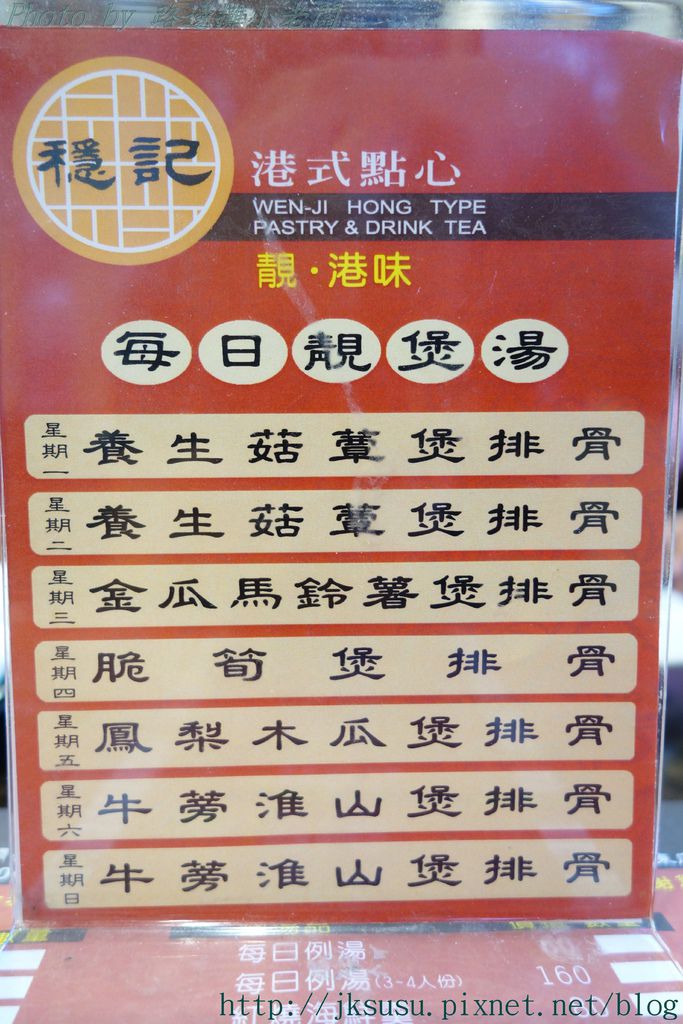 Photo by
穩記
港式點心
WEN-JI HONG TYPE
PASTRY & DRINK TEA
靚·港味
每日靚煲湯
星期一 養生菇蕈煲排骨
星期二 養生菇蕈煲排骨
星期三 金瓜馬鈴薯煲排骨
星期四 脆筍煲排骨
星期五 鳳梨木瓜煲排骨
星期六 牛蒡淮山煲排骨
星期日 牛蒡淮山煲排骨
每日例湯 60
每日例湯(3-4人份) 160
http://jksusu.pixnet.net/blog